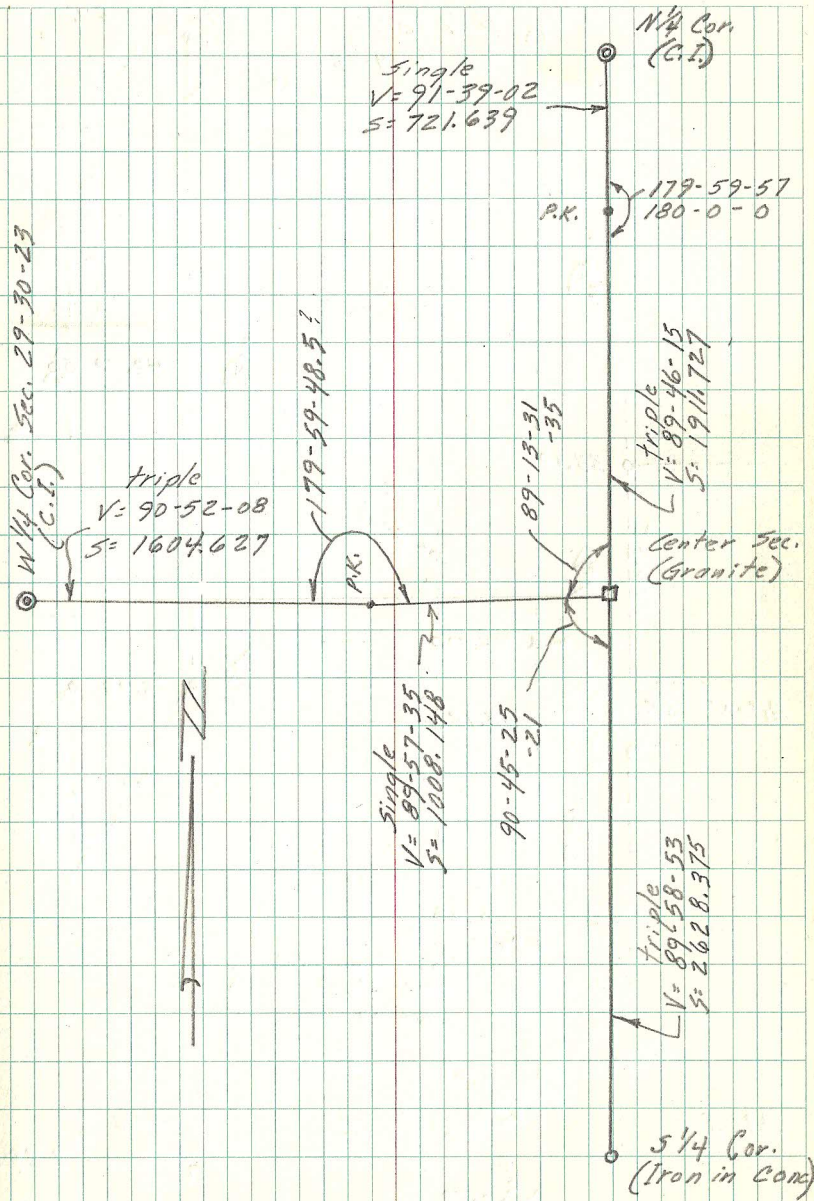 N 1/4 Cor.
(C.I.)
Single
V= 91-39-02
S= 721.639
179-59-57
180-0-0
P.K.
W 1/4 Cor. Sec. 29-30-23
(C.I.)
triple
V= 90-52-08
S= 1604.627
179-59-48.5?
P.K.
89-13-31
-35
triple
V= 89-46-15
S= 1911.727
Center Sec.
(Granite)
N
Single
V= 89-57-35
S= 1008.148
90-45-25
-21
triple
V= 89-58-53
S= 2628.375
S 1/4 Cor.
(Iron in Conc)